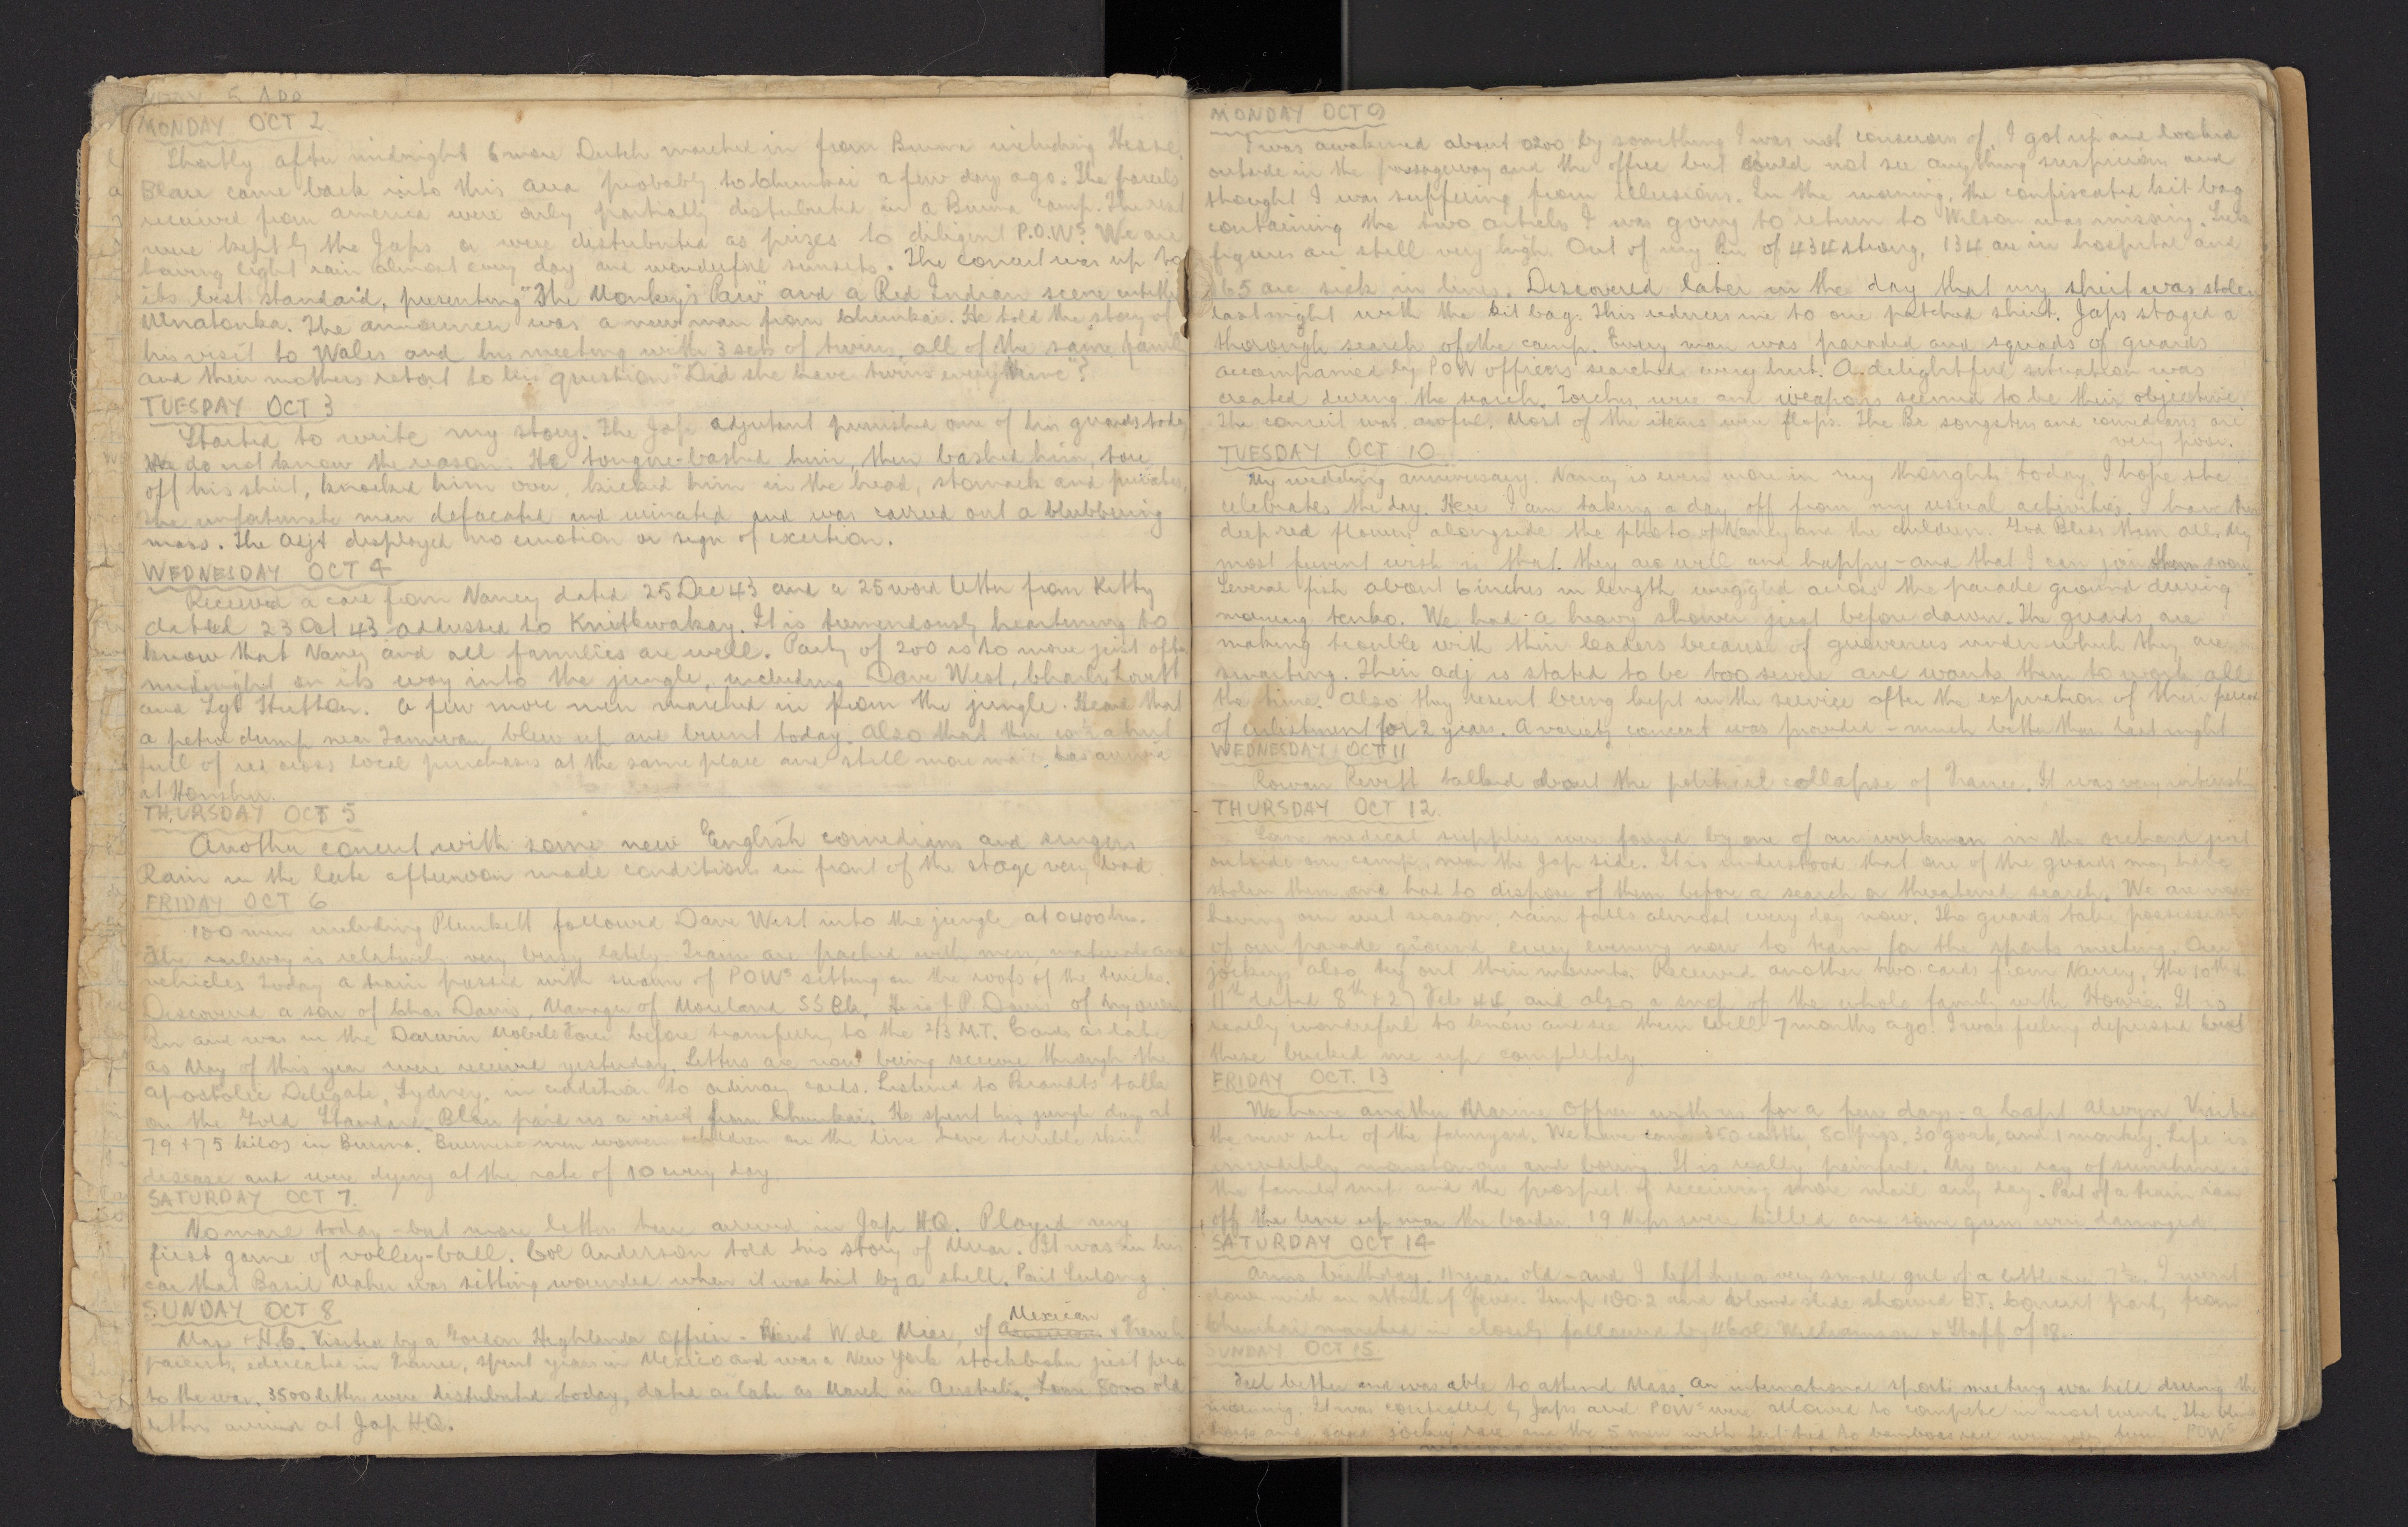 MONDAY OCT 2
Shortly after midnight 6 more Dutch marched in from Burma including Hesse.
Blare came back into this area probably to Chunkai a few days ago. The parcels
received from America were only partially distributed in a Burma camp. The rest
were kept by the Japs or were distributed as prizes to diligent P.O.Ws. We are
having light rain almost every day and wonderful sunsets. The concert was up to
its best standard, presenting "The Monkey's Paw" and a Red Indian scene entitled
The announcer was a new man from Chunkai. He told the story of
his visit to Wales and his meeting with 3 sets of twins, all of the same family
and their mothers retort to his question "Did she have twins every time"?
TUESDAY OCT 3
Started to write my story. The Jap adjutant punished one of his guards today
We do not know the reason. He tongue-lashed him, then bashed him, tore
off his shirt, knocked him over, kicked him in the head, stomach and privates,
the unfortunate man defacated and urinated and was carried out a blubbering
mass. The Adjt displayed no emotion or sign of exertion.
WEDNESDAY OCT 4
Received a card from Nancy dated 25 Dec 43 and a 25 word letter from Kitty
dated 23 Oct 43 addressed to Knitkwakay. It is tremendously heartening to
know that Nancy and all families are well. Party of 200 is to move just after
midnight on its way into the jungle, including Dave West, Charlie Lovett
and Sgt Hutton. A few more men marched in from the jungle. Heard that
a petrol dump near Tamuan blew up and burnt today. Also that there is a hut
full of red cross local purchases at the same place and still more mail has arrived
at
THURSDAY OCT 5
Another concert with some new English comedians and singers
Rain in the late afternoon made conditions in front of the stage very bad.
FRIDAY OCT 6
100 men including Plunkett followed Dave West into the jungle at 0400 hrs.
The railway is relatively very busy lately. Trains are packed with men, materials and
vehicles. Today a train passed with swarm of POWs sitting on the roofs of the trucks.
Discovered a son of Chas Davis, Manager of Moreland SS Elec, He is J.P. Davis of my own
Bn and was in the Darwin Mobile Force before transferring to the 2/3 M.T. Cards as late
as May of this year were received yesterday. Letters are now being received through the
Apostolic Delegate, Sydney, in addition to ordinary cards. Listened to Brandts talk
on the Gold Standard. Blau paid us a visit from Chunkai. He spent his jungle days at
79 + 75 kilos in Burma. Burmese men women + children on the line have terrible skin
disease and were dying at the rate of 10 every day.
SATURDAY OCT 7.
No more today - but more letters have arrived in Jap HQ. Played my
first game of volley-ball. Col Anderson told his story of Muar. It was in his
car that Basil Maher was sitting wounded when it was hit by a shell. Parit Sulong.
SUNDAY OCT 8
Mass + H.C. Visited by a Gordon Highlander officer - Lieut W de Mier, of Mexican + French
parents, educated in France, spent years in Mexico and was a New York stockbroker just prior
to the war. 3500 letters were distributed today, dated as late as March in Australia. Some 8000 old
letters arrived at Jap H.Q.
MONDAY OCT 9
I was awakened about 0200 by something I was not conscious of. I got up and looked
outside in the passageway and the office but could not see anything suspicious and
thought I was suffering from illusions. In the morning, the confiscated kit bag
containing the two articles I was going to return to Wilson was missing. Sick
figures are still very high. Out of my Bn of 434 strong, 134 are in hospital and
65 are sick in lines. Discovered later in the day that my shirt was stolen
last night with the kit bag. This reduces me to one patched shirt. Japs staged a
thorough search of the camp. Every man was paraded and squads of guards
accompanied by POW officers searched every hut. A delightful situation was
created during the search. Torches, wire and weapons seemed to be their objective.
The concert was awful. Most of the items were flops. The Br songsters and comedians are
very poor.
TUESDAY OCT 10
My wedding anniversary. Nancy is even more in my thoughts today. I hope she
celebrates the day. Here I am taking a day off from my usual activities. I have
deep red flowers alongside the photo of Nancy and the children. God Bless them all. My
most fervent wish is that they are well and happy - and that I can join them soon.
Several fish about 6 inches in length wriggled across the parade ground during
morning tenko. We had a heavy shower just before dawn. The guards are
making trouble with their leaders because of grievences under which they are
smarting. Their adj is stated to be too severe and wants them to work all
the time. Also they resent being kept in the service after the expiration of their period
of enlistment for 2 years. A variety concert was provided - much better than last night
WEDNESDAY OCT 11
Rowan talked about the political collapse of France. It was very interesting
THURSDAY OCT 12.
Some medical supplies were found by one of our workmen in the orchard just
outside our camp, near the Jap side. It is understood that one of the guards may have
stolen them and had to dispose of them before a search or threatened search. We are now
having our wet season, rain falls almost every day now. The guards take possession
of our parade ground every evening now to train for the sports meeting. Our
jockeys also try out their mounts. Received another two cards from Nancy, the 10th
11th dated 8th + 27 Feb 44, and also a snap of the whole family with Howie. It is
really wonderful to know and see them well 7 months ago. I was feeling depressed but
these bucked me up completely.
FRIDAY OCT. 13
We have another Marine Officer with us for a few days - a Capt Visited
the new site of the farmyard. We have some 350 cattle, 80 pigs, 30 goats, and 1 monkey. Life is
incredibly monotonous and boring. It is really painful. My one ray of sunshine is
the family snap and the prospect of receiving more mail any day. Part of a train ran
off the line up near the border. 19 Nips were killed and some guns were damaged
SATURDAY OCT 14
birthday. 11 years old - and I left her a very small girl of a little over 7½. I went
down with an attack of fever. Temp 100.2 and blood slide showed BT. Concert party from
Chunkai marched in closely followed by Lt Col Williamson + Staff of 18.
SUNDAY OCT 15.
Feel better and was able to attend Mass. An international sports meeting was held during the
morning. It was controlled by Japs and POWs were allowed to compete in most events. The
horse and jockey race and the 5 men with feet tied to bamboos race were POWs